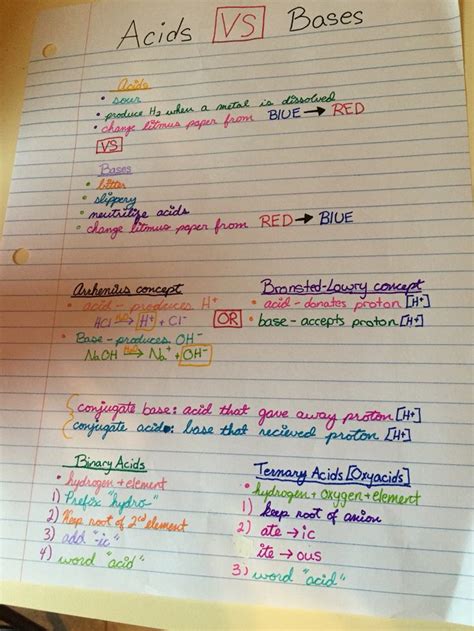 Acids VS Bases
Acids
• sour
• produce H₂ when a metal is dissolved
• change litmus paper from BLUE → RED
VS
Bases
• bitter
• slippery
• neutrilize acids
• change litmus paper from RED → BLUE
Arrhenius concept
• acid - produces H⁺
HCl →H₂O H⁺ + Cl⁻
• Base - produces OH⁻
NaOH →H₂O Na⁺ + OH⁻
OR
Bronsted-Lowry concept
• acid - donates proton [H⁺]
• base - accepts proton [H⁺]
conjugate base: acid that gave away proton [H⁺]
conjugate acid: base that recieved proton [H⁺]
Binary Acids
• hydrogen + element
1) Prefix "hydro"
2) Keep root of 2nd element
3) add "-ic"
4) word "acid"
Ternary Acids [Oxyacids]
• hydrogen + oxygen + element
1) keep root of anion
2) ate → ic
ite → ous
3) word "acid"